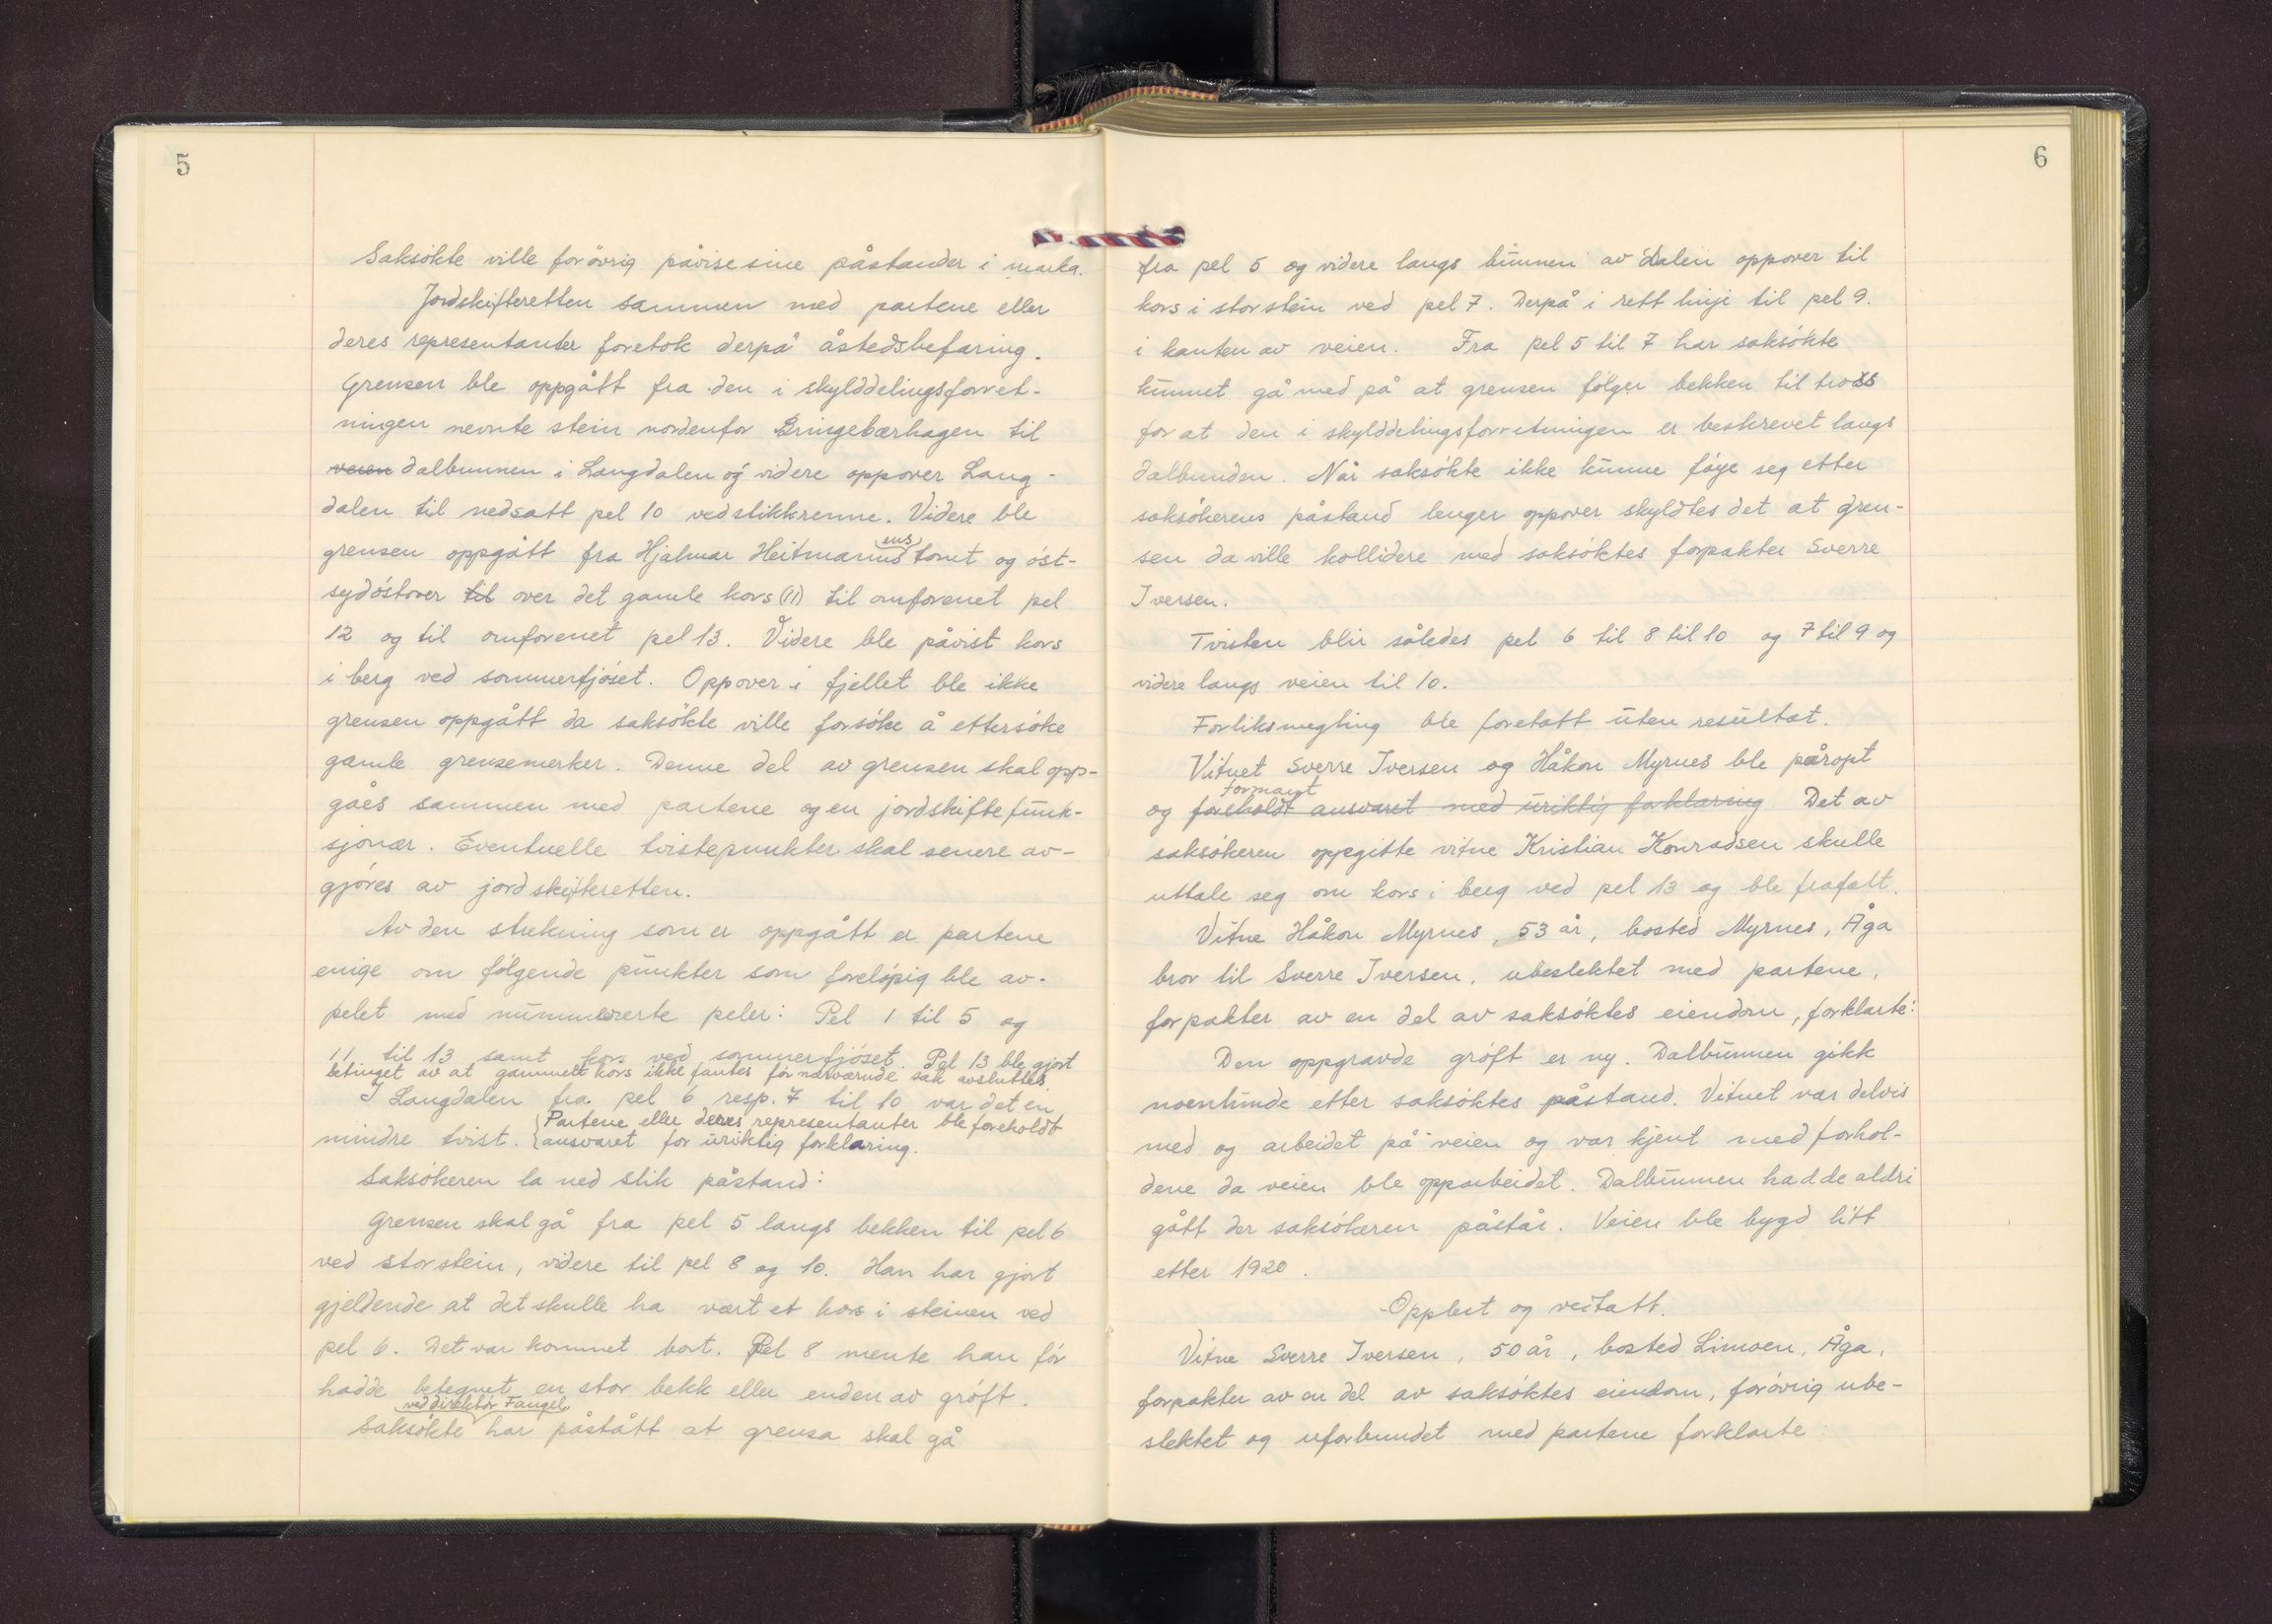 5
Saksökte ville forövrig påvise sine påstander i marka.
Jordskifteretten sammen med partene eller
deres representanter foretok derpå åstedsbefaring.
Grensen ble oppgått fra den i skylddelingsforret-
ningen nevnte stein nordenfor Bringebærhagen til
veien dalbunnen i Langdalen og videre oppover Lang-
dalen til nedsatt pel 10 ved stikkrenne. Videre ble
ens
grensen oppgått fra Hjalmar Heitmanns tomt og öst-
sydöstover til over det gamle kors (11) til omforenet pel
12 og til omforenet pel 13. Videre ble påvist kors
i berg ved sommerfjöset. Oppover i fjellet ble ikke
grensen oppgått da saksökte ville forsöke å ettersöke
gamle grensemerker. Denne del av grensen skal opp-
gåes sammen med partene og en jordskiftefunk-
sjonær. Eventuelle tvistepunkter skal senere av-
gjöres av jordskifteretten.
Av den strekning som er oppgått er partene
enige om fölgende punkter som forelöpig ble av-
pelet med nummererte peler: Pel 1 til 5 og
11 til 13 samt kors ved sommerfjöset. Pel 13 ble gjort
betinget av at gammelt kors ikke fantes för nærværende sak avsluttes.
I Langdalen fra pel 6 resp. 7 til 10 var det en
Partene eller deres representanter ble foreholdt
mindre tvist. ansvaret for uriktig forklaring.
Saksökeren la ned slik påstand:
Grensen skal gå fra pel 5 langs bekken til pel 6
ved stor stein, videre til pel 8 og 10. Han har gjort
gjeldende at det skulle ha vært et kors i steinen ved
pel 6. Det var kommet bort. Pel 8 mente han för
hadde betegnet en stor bekk eller enden av gröft.
ved direktör Fangel
Saksökte har påstått at grensa skal gå
6
fra pel 5 og videre langs bunnen av dalen oppover til
kors i stor stein ved pel 7. Derpå i rett linje til pel 9.
i kanten av veien. Fra pel 5 til 7 har saksökte
kunnet gå med på at grensen fölger bekken til tross
for at den i skylddelingsforretningen er beskrevet langs
dalbunden. Når saksökte ikke kunne föye seg etter
saksökerens påstand lenger oppover skyldtes det at gren-
sen da ville kollidere med saksöktes forpakter Sverre
Iversen.
Tvisten blir således pel 6 til 8 til 10 og 7 til 9 og
videre langs veien til 10.
Forliksmegling ble foretatt uten resultat.
Vitnet Sverre Iversen og Håkon Myrnes ble påropt
formant
og foreholdt ansvaret med uriktig forklaring Det av
saksökeren oppgitte vitne Kristian Konradsen skulle
uttale seg om kors i berg ved pel 13 og ble frafalt.
Vitne Håkon Myrnes, 53 år, bosted Myrnes, Åga
bror til Sverre Iversen, ubeslektet med partene,
forpakter av en del av saksöktes eiendom, forklarte:
Den oppgravde gröft er ny. Dalbunnen gikk
noenlunde etter saksöktes påstand. Vitnet var delvis
med og arbeidet på veien og var kjent med forhol-
dene da veien ble opparbeidet. Dalbunnen hadde aldri
gått der saksökeren påstår. Veien ble bygd litt
etter 1920.
Opplest og vedtatt.
Vitne Sverre Iversen, 50 år, bosted Limoen, Åga,
forpakter av en del av saksöktes eiendom, forövrig ube-
slektet og uforbundet med partene forklarte